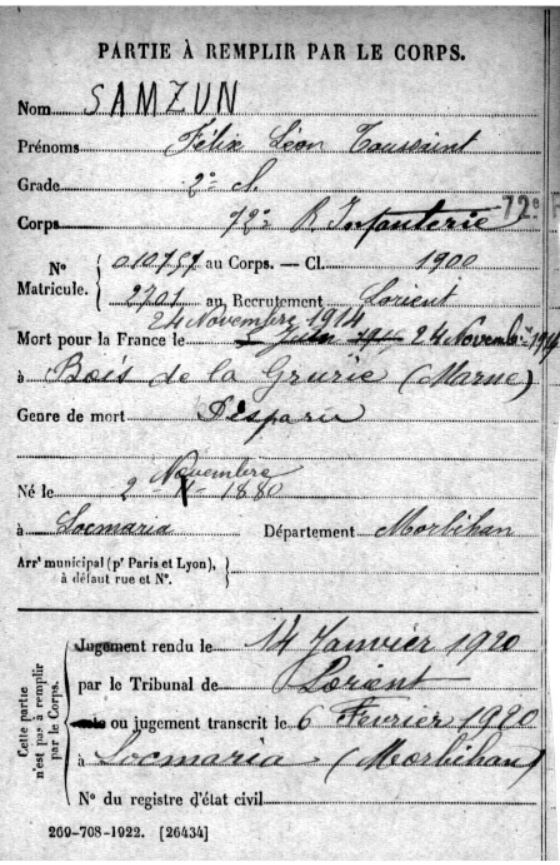 PARTIE À REMPLIR PAR LE CORPS.
Nom SAMZUN
Prénoms Félix Léon Toussaint
Grade 2e cl.
Corps 72e R. Infanterie 72e
No Matricule. { 010757 au Corps. — Cl. 1900
2701 au Recrutement Lorient
24 Novembre 1914
Mort pour la France le Juin 24 Novembre 1914
à Bois de la Grurie (Marne)
Genre de mort Disparu
Novembre
Né le 2 - 11 - 1880
à Locmaria Département Morbihan
Arrt municipal (pr Paris et Lyon),
à défaut rue et No.
Jugement rendu le 14 Janvier 1920
par le Tribunal de Lorient
ou jugement transcrit le 6 Fevrier 1920
à Locmaria (Morbihan)
No du registre d'état civil
Cette partie
n'est pas à remplir
par le Corps.
260-708-1922. [26434]